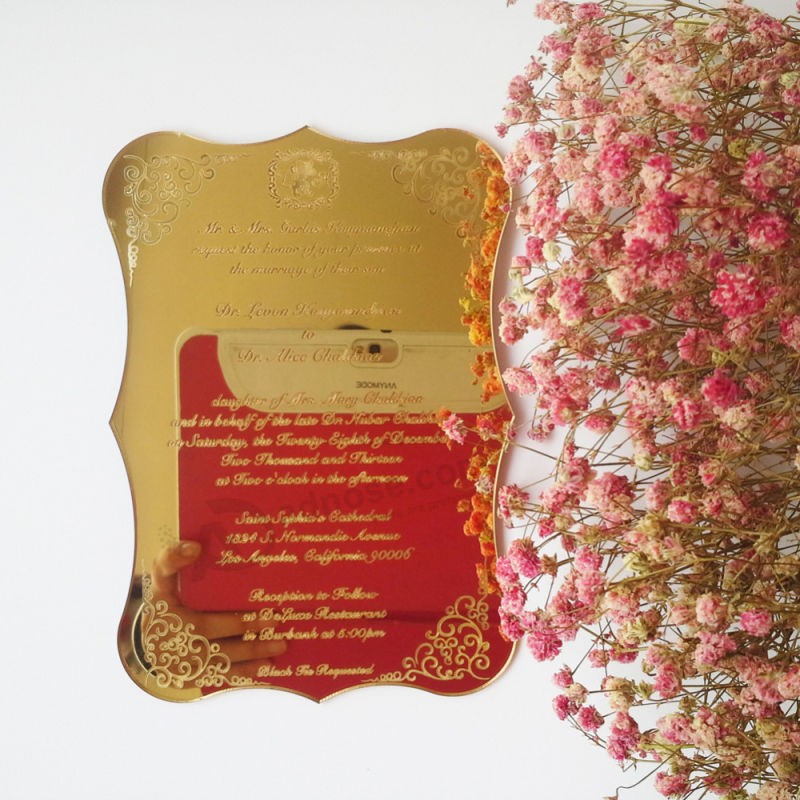 Mr. & Mrs.
request the honor of your presence at
the marriage of their son
Dr. Levon
to
Dr. Alice
daughter of Mrs. Mary
and in behalf of the late Dr. Nubar
on Saturday, the Twenty-Eighth of December
Two Thousand and Thirteen
at Two o'clock in the afternoon
Saint Sophia's Cathedral
1324 S. Normandie Avenue
Los Angeles, California 90006
Reception to Follow
at DeLuxe Restaurant
in Burbank at 6:00pm
Black Tie Requested
ANYMODE